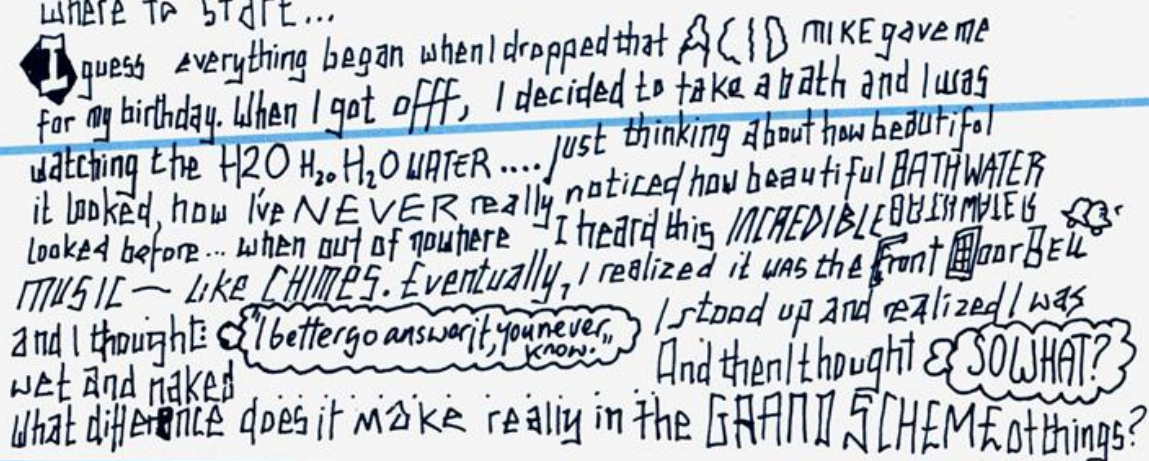 Where to start...
I guess everything began when I dropped that ACID MIKE gave me
for my birthday. When I got offf, I decided to take a bath and I was
watching the H2O H₂₀ H₂O WATER .... just thinking about how beautiful
it looked, how I've NEVER really noticed how beautiful BATHWATER
looked before... when out of nowhere I heard this INCREDIBLE
MUSIC — LIKE CHIMES. Eventually, I realized it was the Front Door BELL
and I thought: "I better go answer it, you never know." I stood up and realized I was
wet and naked And then I thought SO WHAT?
What difference does it make really in the GRAND SCHEME of things?